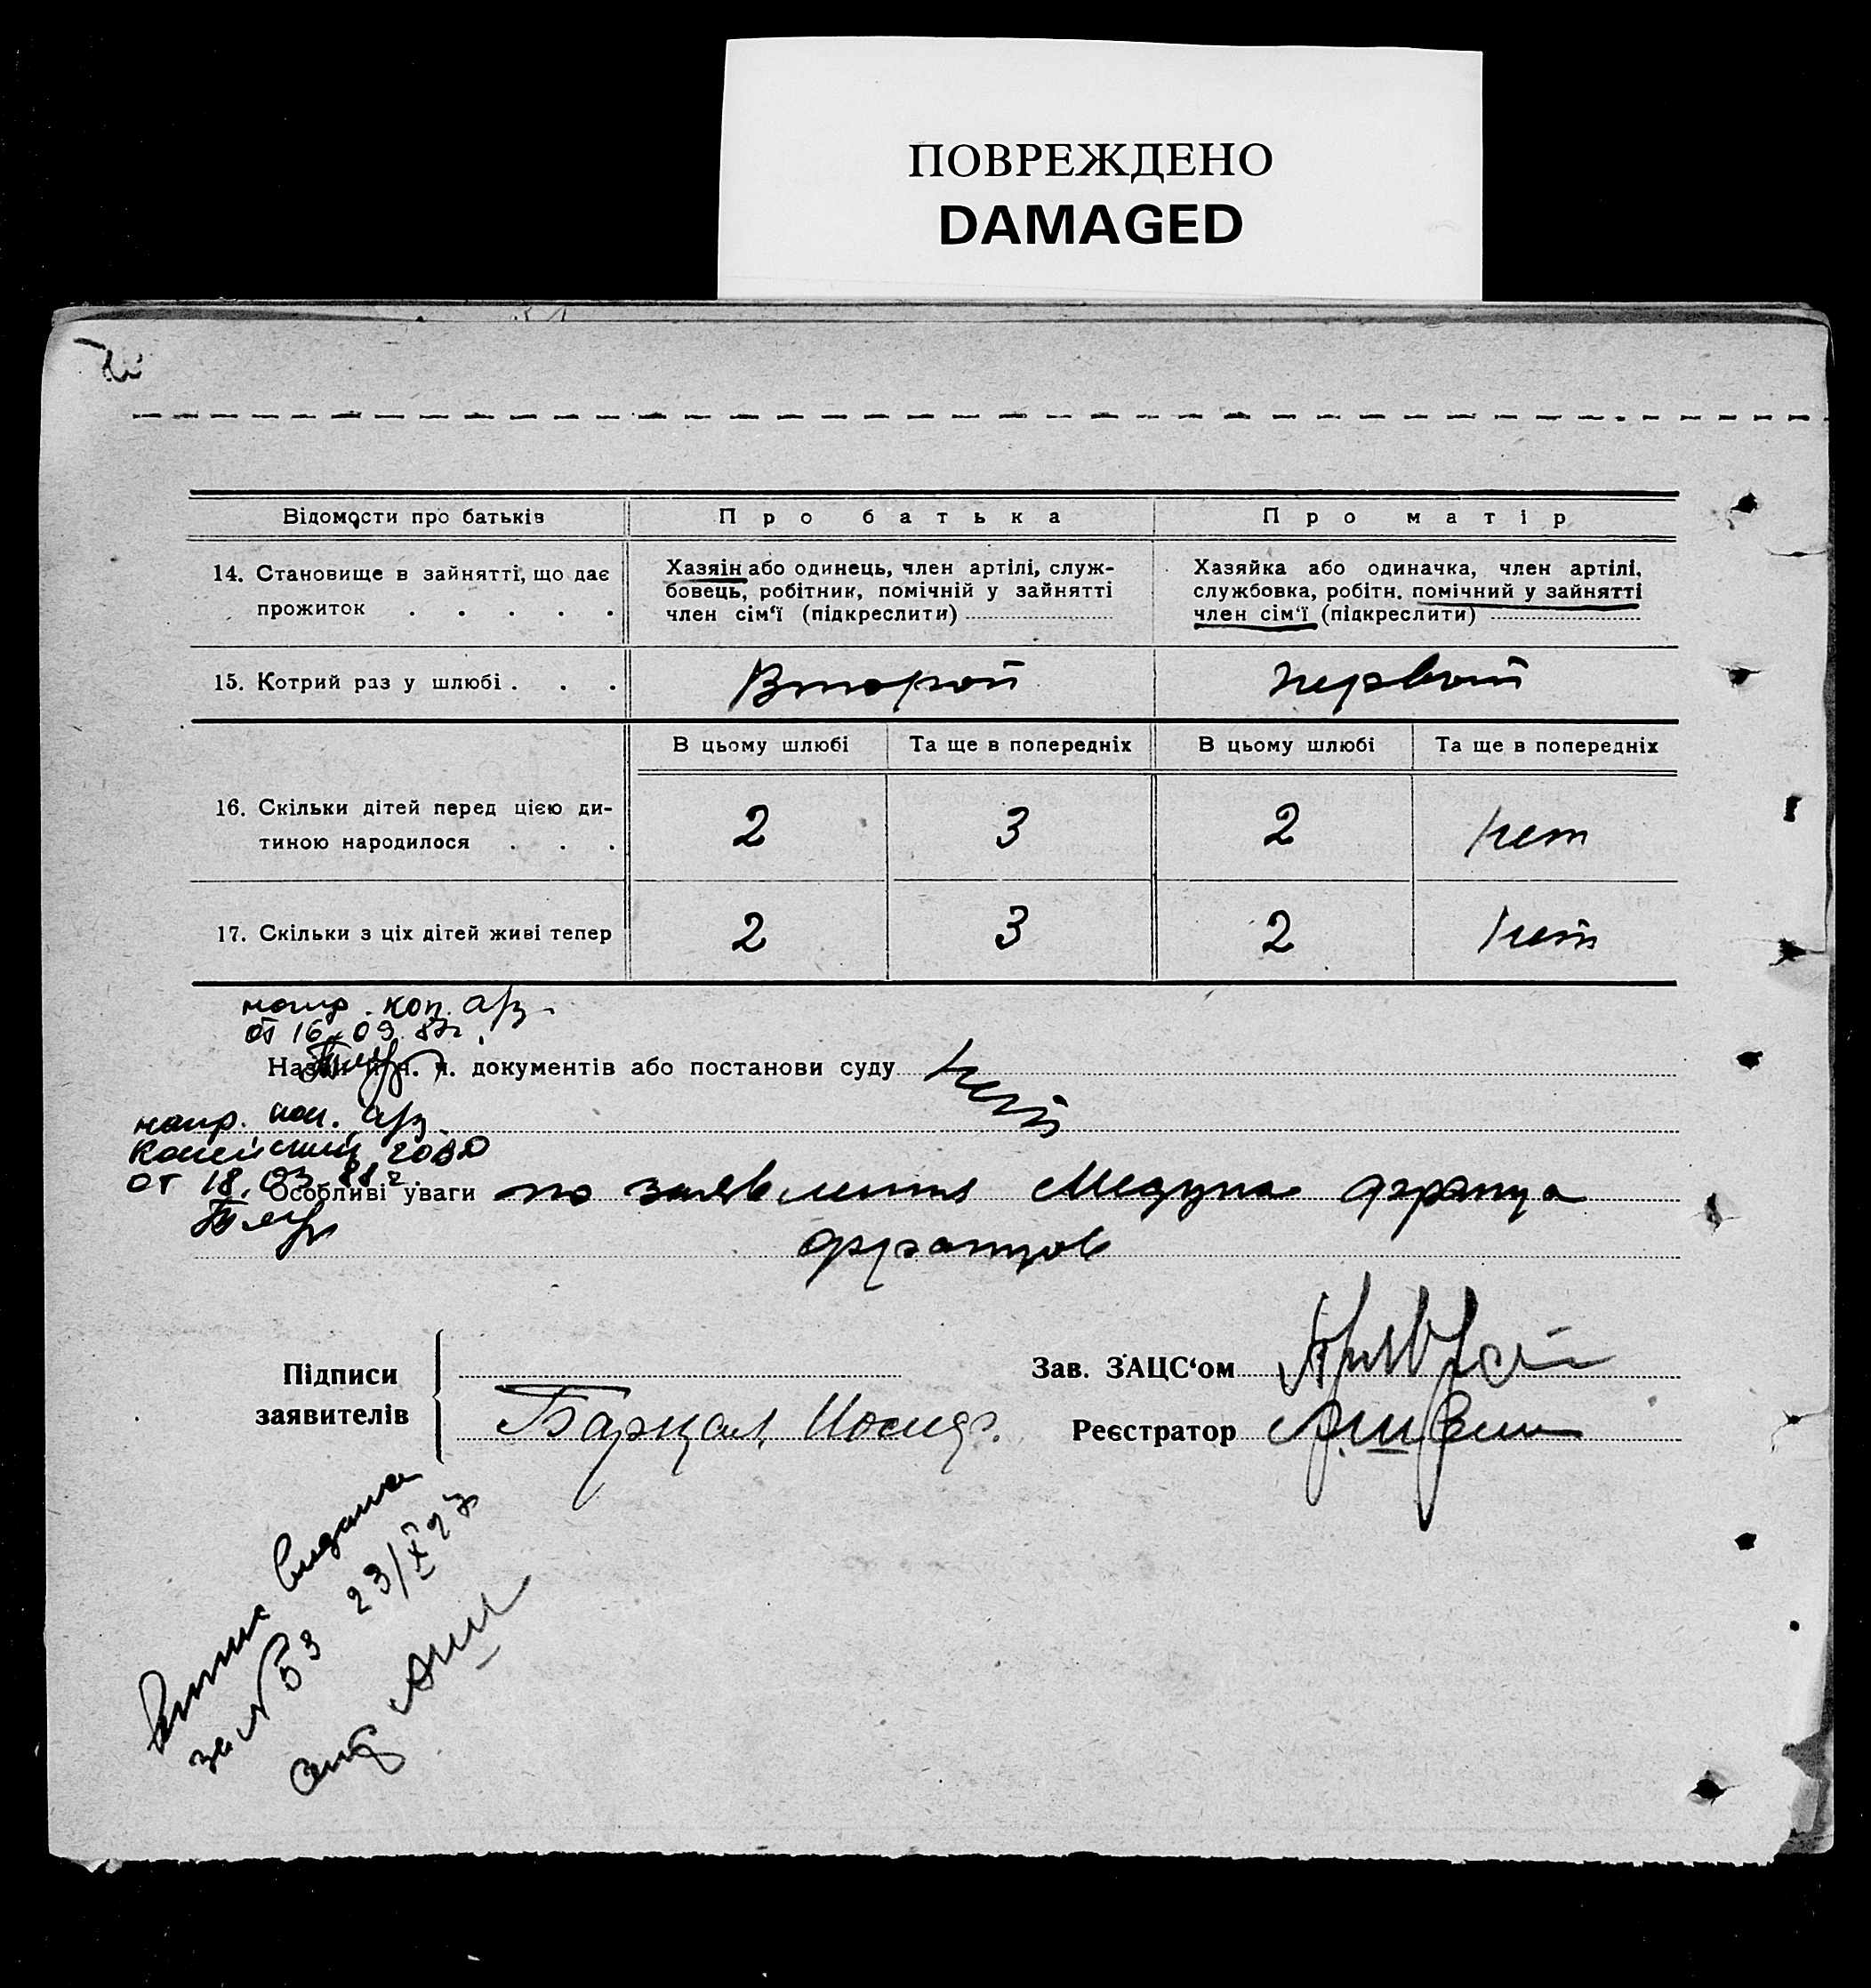 ПОВРЕЖДЕНО
DAMAGED
Відомости про батьків
Про батька
Про матір
14. Становище в зайнятті, що дає
прожиток . . . . .
Хазяін або одинець, член артілі, служ-
бовець, робітник, помічній у зайнятті
член сім‘ї (підкреслити)
Хазяйка або одиначка, член артілі,
службовка, робітн. помічний у зайнятті
член сім‘ї (підкреслити)
15. Котрий раз у шлюбі . . .
Второй
первый
В цьому шлюбі
Та ще в попередніх
В цьому шлюбі
Та ще в попередніх
16. Скільки дітей перед цією ди-
тиною народилося . . .
2
3
2
нет
17. Скільки з ціх дітей живі тепер
2
3
2
нет
напр. коп. а/з
от 16.09.87г.
документів або постанови суду нет
напр. коп. а/з
от 18.03.88г.
Особливі уваги по заявления
Підписи
заявителів
Зав. ЗАЦС‘ом
Реєстратор
видана
за № 53 23/X